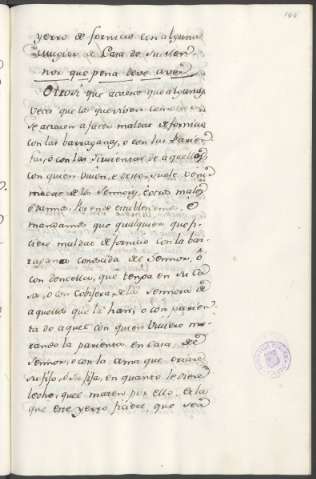 yerro de fornicio con alguna
muger de Casa de su Señor
que pena deve aver
Otrosi que acaece que algunas
veces que los que viven con
se atreven a facer maldad de fornicio
con las barraganas, o con las
o con las sirvientas de aquellos
con quien viven, e desto suele
de los Señores,
e daños. Por ende establecemos, e
mandamos que qualquier que fi-
ciere maldad de fornicio con la bar-
ragana conocida del Señor, o
con doncella, que tenga en su Ca-
sa, o con Cobijera de la Señora de
aquellos que la han, o con parien-
ta de aquel con quien viviere mo-
rando la parienta en casa del
Señor, o con la ama que criare
su fijo, o su fija, en quanto le diere
leche, que maten por ello. E la
que este yerro ficiere, que sea